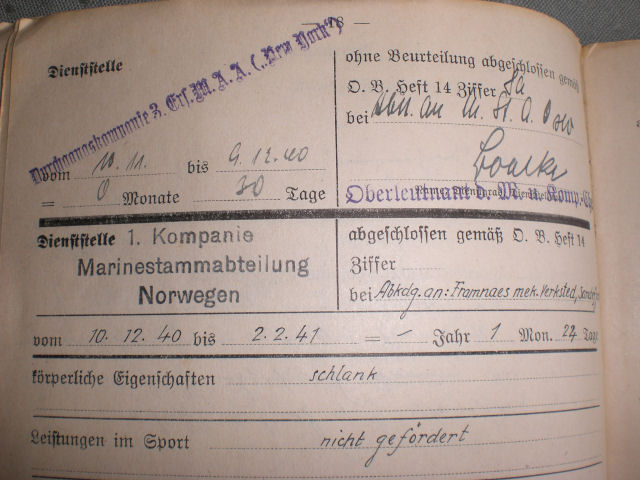 — 78 —
Dienststelle
Durchgangskompanie 3. Ers. M. A. A. („New York")
vom 10.11. bis 9.12.40
= 0 Monate 30 Tage
ohne Beurteilung abgeschlossen gemäß
O. B. Heft 14 Ziffer 8a
bei Abk. an M. St. A. Oslo
Oberleutnant d. M. u. Komp.
Dienststelle 1. Kompanie
Marinestammabteilung
Norwegen
abgeschlossen gemäß O. B. Heft 14
Ziffer
bei Abkdg. an: Framnaes mek. Verksted,
vom 10. 12. 40 bis 2.2.41 = - Jahr 1 Mon. 24 Tage
körperliche Eigenschaften schlank
Leistungen im Sport nicht gefördert